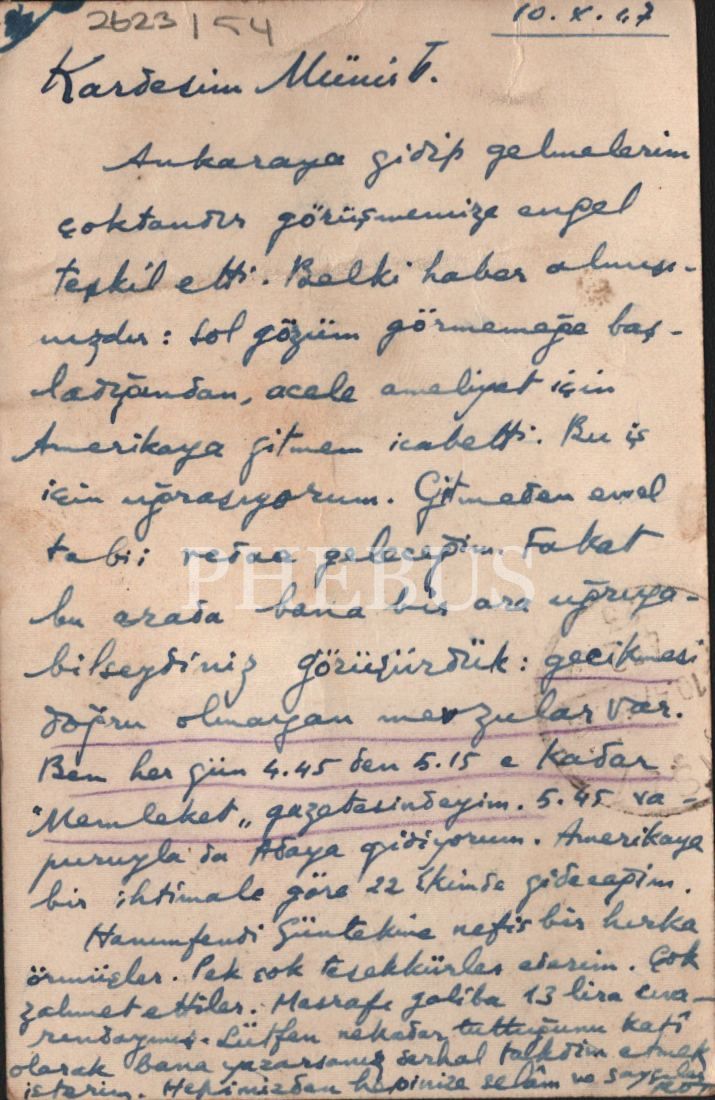 2623 | 54
10.X.47
Kardeşim Münir F.
Ankaraya gidip gelmelerim
çoktandır görüşmemize engel
teşkil etti. Belki haber almışı-
nızdır: Sol gözüm görmemeğe baş-
ladığından, acele ameliyat için
Amerikaya gitmem icabetti. Bu iş
için uğraşıyorum. Gitmeden evvel
tabii vedaa geleceğim. Fakat
bu arada bana bir ara uğrıya-
bilseydiniz görüşürdük: gecikmesi
doğru olmayan mevzular var.
Ben her gün 4.45 den 5.15 e kadar
"Memleket" gazetesindeyim. 5.45 va-
puruyla da Adaya gidiyorum. Amerikaya
bir ihtimale göre 22 Ekimde gideceğim.
Hanımfendi Güntekine nefis bir hırka
örmüşler. Pek çok teşekkürler ederim. Çok
zahmet ettiler. Masrafı galiba 13 lira cıva-
rındaymış. Lütfen nekadar tuttuğunu kat'î
olarak bana yazarsanız derhal takdim etmek
isterim. Hepimizden hepinize selâm ve saygılar
PHEBUS